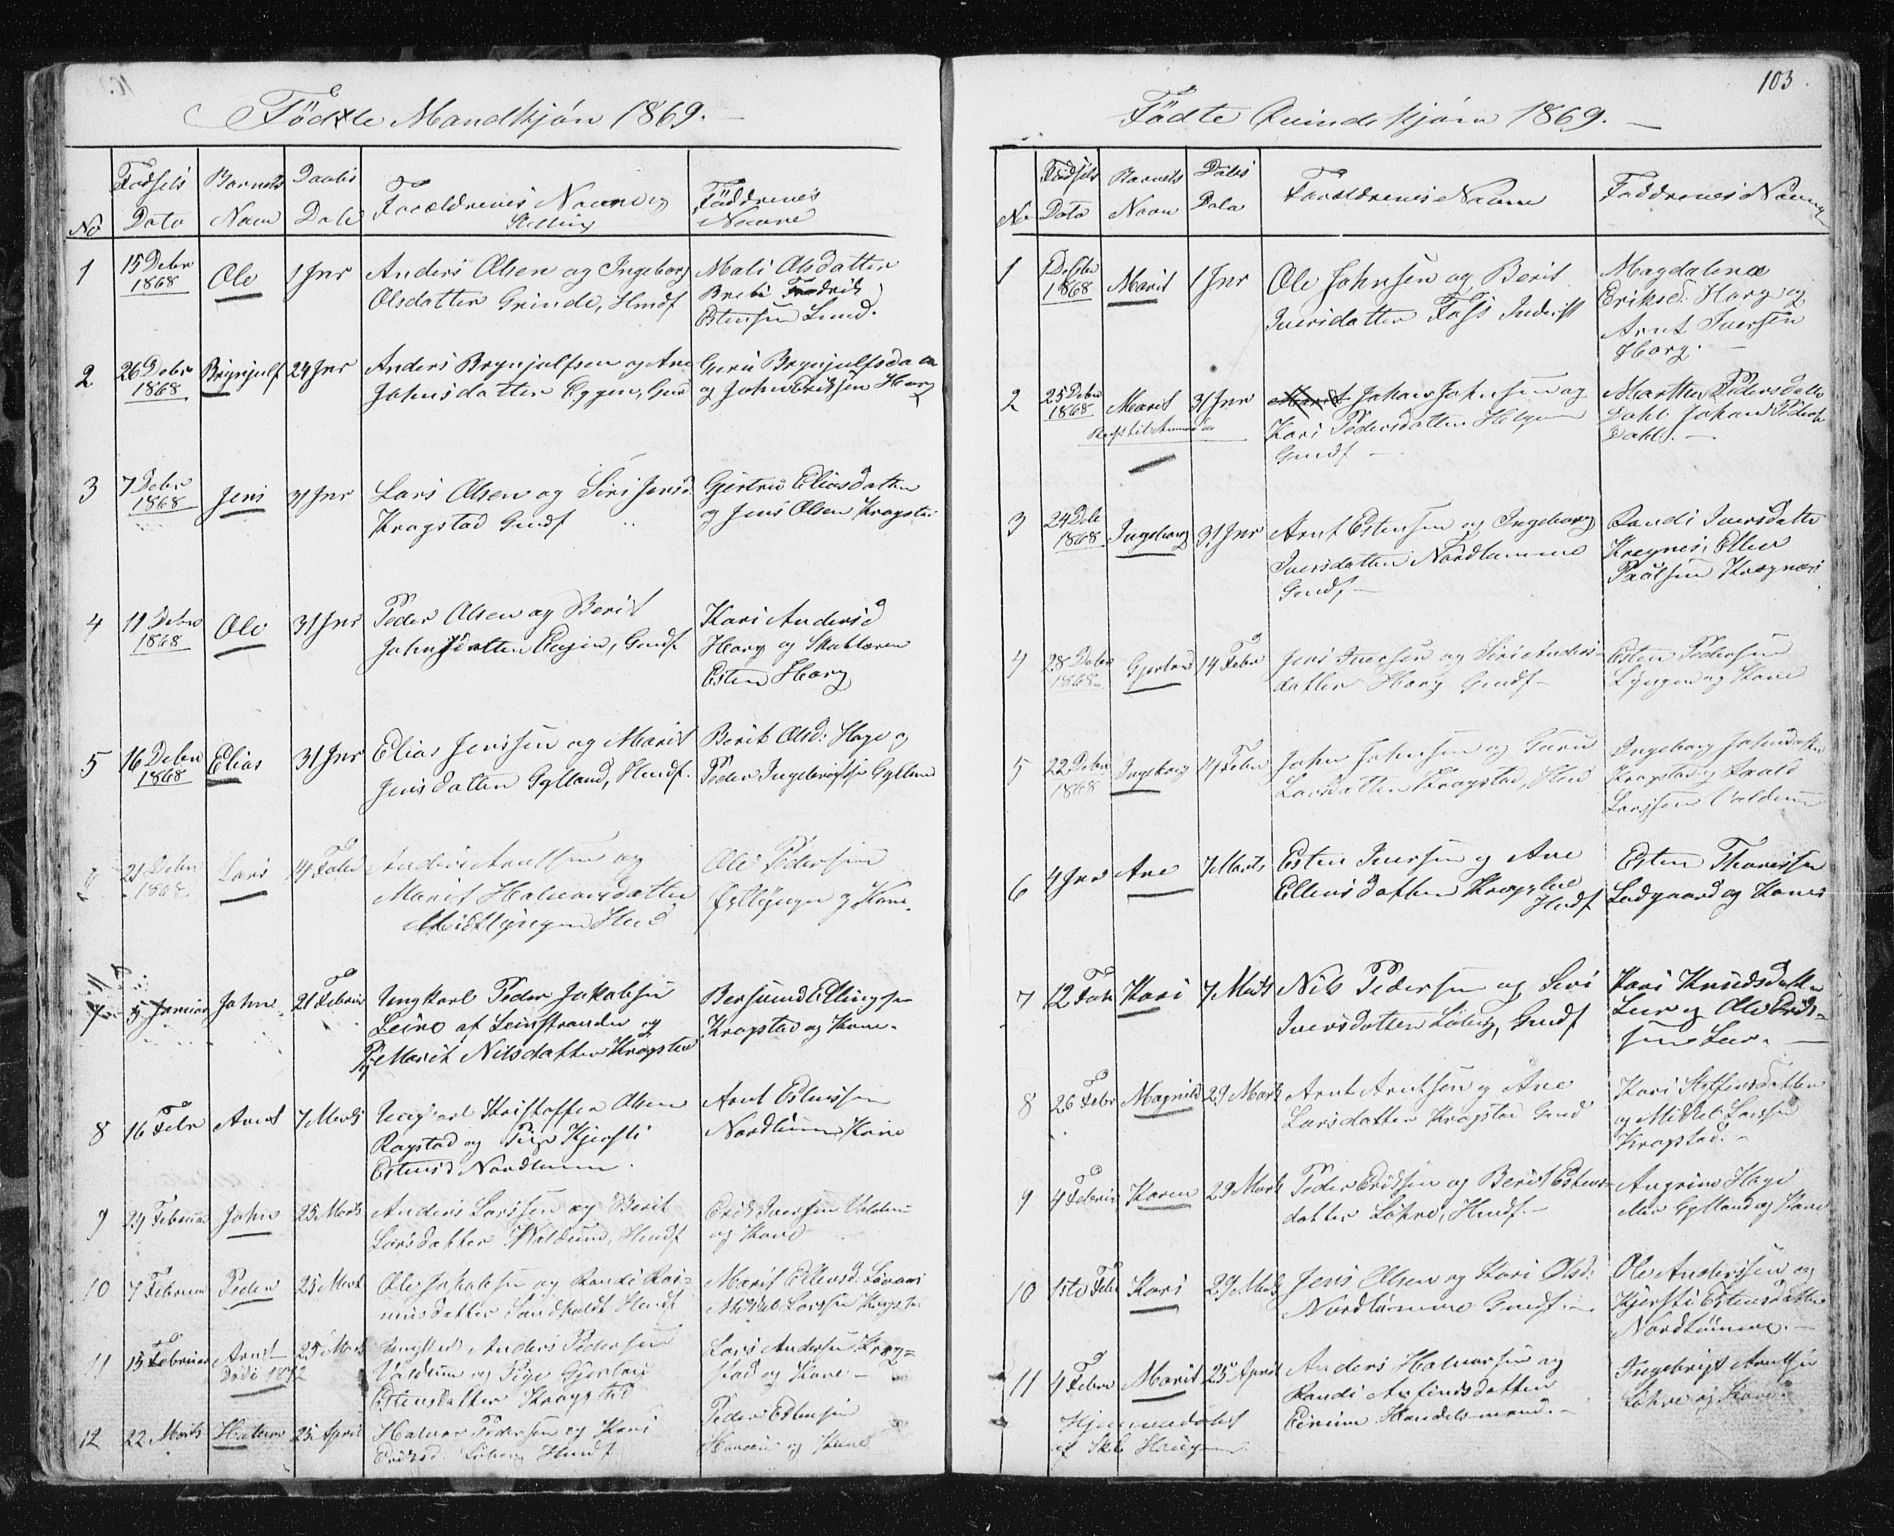 Födte Mandkjön 1869.
No
Fødsels Dato
Barnets Navn
Daabs Dato
Forældrenes Navn og Stilling
Faddrenes Navne
1 15 Debr 1868 Ole 1 Jnr
Anders Olsen og Ingeborg
Olsdatter Grinde, Hmdf
Mali Olsdatter
Fredrik
Estensen Lund.
2 26 Debr 1868 Brynjulf 24 Jnr
Anders Brynjulfsen og Ane
Johnsdatter Eggen, Gmd
Guru Brynjulfsda
og John Eriksen Horg
3 7 Debr 1868 Jens 31 Jnr
Lars Olsen og Siri Jensd
Kragstad Gmdf
Gjertru Eliasdatter
og Jens Olsen Kragsta
4 11 Debr 1868 Ole 31 Jnr
Peder Olsen og Berit
Johnsdatter, Gmdf
Kari Andersd
Horg og Skoltæren
Esten Horg
5 16 Debr 1868 Elias 31 Jnr
Elias Jenssen og Marit
Jensdatter Gylland, Hmdf.
Berit Olsd: Hage og
Peder Ingebrigtsen Gyllan
21 Debr 1868 Lars 14 Febr
Anders Arntsen og
Marit Halvorsdatter
Hmd
Ole Pedersen
og Kone.
7 5 Januar John 21 Februar
Ungkarl Peder Jakobsen
Leinstranden og
Pig Marit Nilsdatter Kragstad
Bersvend Ellingsen
Kragstad og Kone.
8 16 Febr Arnt 7 Marts
Ungkarl Kristoffer Olsen
Ragstad og Pige Kjersti
Estensd Nordtømme.
Arnt Estenssen
Nordtømme, Kone
9 24 Februar John 25 Marts
Anders Larssen og Berit
Larsdatter Waldum, Hmdf
Erik Iversen Valdum
og Kone
10 7 Februar Peder 25 Mart
Ole Jakobsen og Randi Ras=
musdatter Hmdf
Marit Ellevsd.
Mikkel Larssen Kragsta
11 13 Februar Arnt 25 Marts
Död 1872
Ungkarl Anders Pedersen
Valdum og Pige Gjertru
Estensdatter Kragstad
Lars Andersen Krag=
stad og Kone
12 22 Marts Halvor 25 April
Halvor Pedersen og Kari
Eriksd. Løberg Hmdf
Peder Estensen
og Kone
103.
Födte Qvindekjön 1869.
No
Fødsels Dato
Barnets Navn
Daabs Dato
Forældrenes Navne
Faddrenes Navne
1 1868 Marit 1 Jnr
Ole Johnsen og Berit
Iversdatter Foss Inderst
Magdalena
Eriksd: Horg og
Arnt Iversen
Horg.
2 25 Debr 1868 Marit 31 Jnr
Johan Johnsen og
Kari Pedersdatter
Gmdf
Marthe Pedersdatter
Dahl Johan Peders
Dahl.
3 24 Deb 1868 Ingeborg 31 Jnr
Arnt Estensen og Ingeborg
Iversdatter Nordtømme
Gmdf
Randi Iversdatter
Krognes, Ellev
Paulsen Krognes
4 28 Debr 1868 Gjertru 14 Febr
Jens Iversen og Siri Anders=
datter Horg Gmdf
Esten Pedersen
Lyngen og Kone
5 22 Debr 1868 Ingeborg 14 Febr
John Johnsen og Guru
Larsdatter Kragstad, Hmd
Ingeborg Johnsdatter
Kragstad og
Larssen Valdum
6 4 Jnr Ane 7 Marts
Esten Iversen og Ane
Ellevsdatter Hmdf
Esten Thoressen
Ladgaard og Kone
7 12 Feb Kari 7 Marts
Nils Pedersen og Siri
Iversdatter Løberg, Gmdf
Kari Knudsdatter
Leer og Ole Erik=
sen Leer.
8 26 Febr Magnild 29 Marts
Arnt Arntsen og Ane
Larsdatter Kragstad Gmd
Kari Steffensdatter
og Mikkel Larssen
Kragstad.
9 4 Februar Karen 29 Marts
Peder Eriksen og Berit Estens=
datter Løhre, Hmdf.
Angrim Hage
eller Gylland og Kone
10 1ste Feb Kari 29 Marts
Jens Olsen og Kari Olsd:
Nordtømme Gmdf
Ole Anderssen og
Kjersti Estensdatter
Nordtømme.
11 4 Febr Marit 25 April
Hjemmedøbt
af Skl Haugen
Anders Halvorsen og
Randi Arfindsdatter
Handelsmand.
Ingebrigt Arntsen
Løhre og Kone